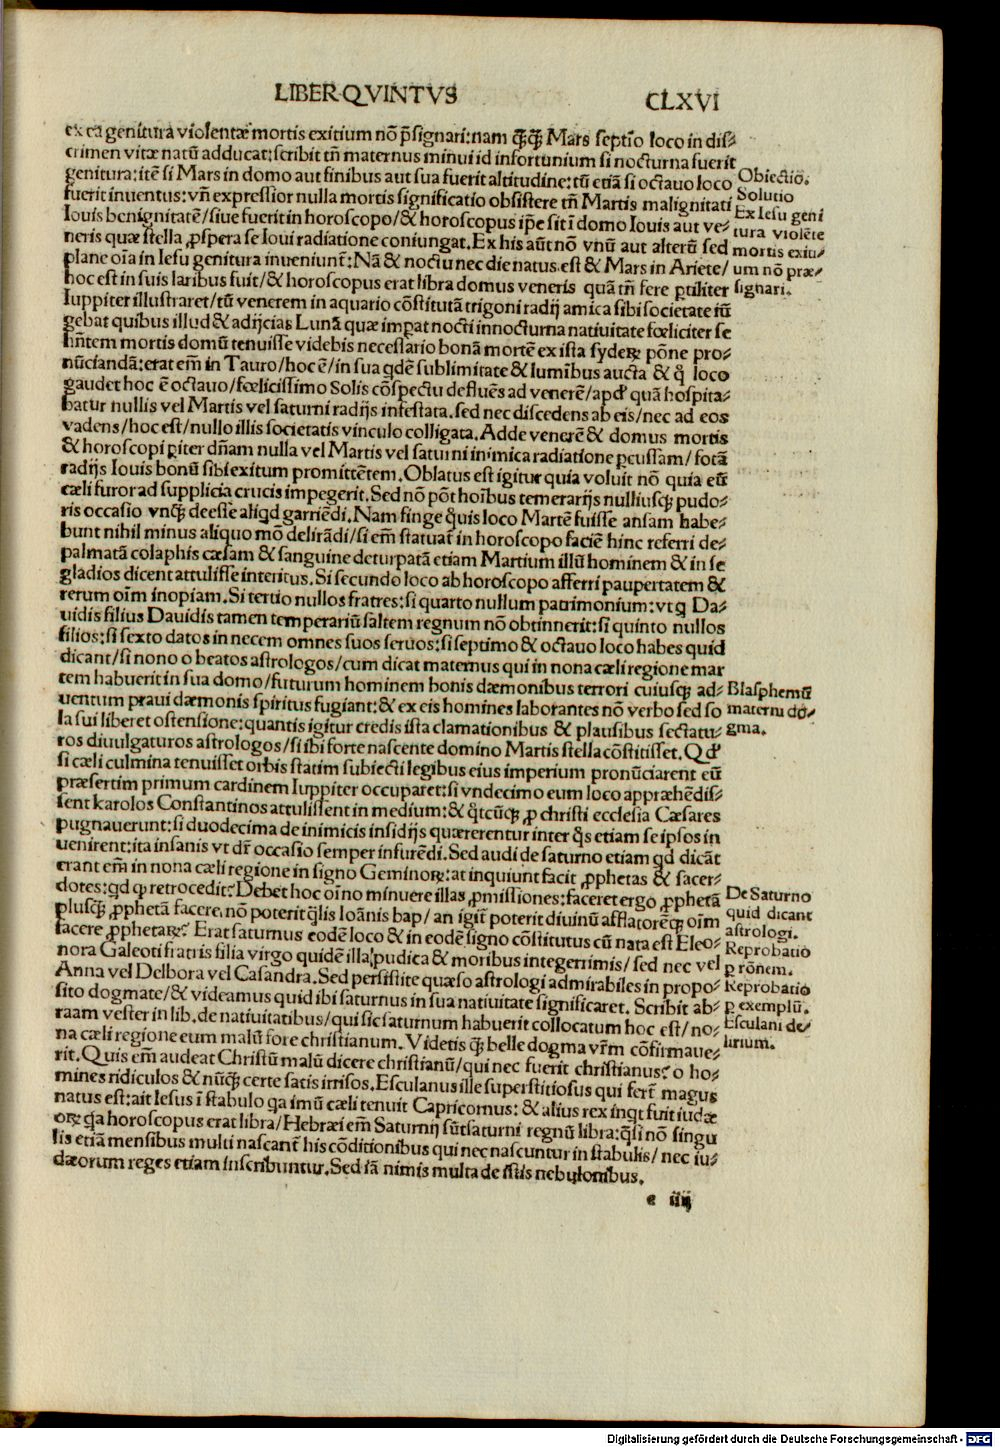 LIBER QVINTVS
CLXVI
ex ea genitura violentæ mortis exitium nō p̄signari: nam q̃q̃ Mars septīo loco in dis/
crimen vitæ natū adducat: scribit tñ maternus minui id infortunium si nocturna fuerit
genitura: itē si Mars in domo aut finibus aut sua fuerit altitudine: tū etiā si octauo loco
fuerit inuentus: vñ expressior nulla mortis significatio obsistere tñ Martis malignitati
Iouis benignitatē/ siue fuerit in horoscopo/ & horoscopus ip̄e sit ī domo Iouis aut ve/
neris quæ stella ꝓspera se Ioui radiatione coniungat. Ex his aūt nō vnū aut alterū sed
plane oīa in Iesu genitura inueniunt̄: Nā & noctu nec die natus est & Mars in Ariete/
hoc est in suis laribus fuit/ & horoscopus erat libra domus veneris quā tñ fere ꝑtiliter
Iuppiter illustraret/ tū venerem in aquario cōstitutā trigoni radij amica sibi societate iū
gebat quibus illud & adijcias Lunā quæ imꝑat nocti in nocturna natiuitate fœliciter se
hñtem mortis domū tenuisse videbis necessario bonā mortē ex ista syderꝝ pōne pro/
nūciandā: erat em̄ in Tauro/ hoc ē/ in sua qdē sublimitate & lumībus aucta & q̄ loco
gaudet hoc ē octauo/ fœlicissimo Solis cōspectu defluēs ad venerē/ apđ quā hospita/
batur nullis vel Martis vel saturni radijs infestata. sed nec discedens ab eis/ nec ad eos
vadens/ hoc est/ nullo illis societatis vinculo colligata. Adde venerē & domus mortis
& horoscopi ꝑiter dñam nulla vel Martis vel saturni inimica radiatione ꝑcussam/ fotā
radijs Iouis bonū sibi exitum promittētem. Oblatus est igitur quia voluit nō quia eū
cæli furor ad supplicia crucis impegerit. Sed nō pōt hoībus temerarijs nulliusq̃ pudo/
ris occasio vnq̃ deesse aliqd garriēdi. Nam finge q̄uis loco Martē fuisse ansam habe/
bunt nihil minus aliquo mō delirādi/ si em̄ statuat̄ in horoscopo faciē hinc referri de/
palmatā colaphis cæsam & sanguine deturpatā etiam Martium illū hominem & in se
gladios dicent attulisse interitus. Si secundo loco ab horoscopo afferri paupertatem &
rerum oīm inopiam. Si tertio nullos fratres: si quarto nullum patrimonium: vtq Da/
uidis filius Dauidis tamen temperariū saltem regnum nō obtinnerit: si quinto nullos
filios: si sexto datos in necem omnes suos seruos: si septimo & octauo loco habes quid
dicant/ si nono o beatos astrologos/ cum dicat maternus qui in nona cæli regione mar
tem habuerit in sua domo/ futurum hominem bonis dæmonibus terrori cuiusq̃ ad/
uentum praui dæmonis spiritus fugiant: & ex eis homines laborantes nō verbo sed so
la sui liberet ostensione: quantis igitur credis ista clamationibus & plausibus sectatu/
ros diuulgaturos astrologos/ si ibi forte nascente domino Martis stella cōstitisset. Qđ
si cæli culmina tenuisset orbis statim subiecti legibus eius imperium pronūciarent eū
præsertim primum cardinem Iuppiter occuparet: si vndecimo eum loco appræhēdis/
sent karolos Constantinos attulissent in medium: & q̄tcūq̃ ꝓ christi ecclesia Cæsares
pugnauerunt: si duodecima de inimicis insidijs quærerentur inter q̄s etiam se ipsos in
uenirent: ita insanis vt dr̄ occasio semper insurēdi. Sed audi de saturno etiam qd dicāt
erant em̄ in nona cæli regione in signo Geminoꝝ: at inquiunt facit ꝓphetas & sacer/
dotes: qd q̨ retrocedit? Debet hoc oīno minuere illas ꝓmissiones: faceret ergo ꝓphetā
plusq̃ ꝓphetā facere nō poterit q̄lis Ioānis bap/ an igit̄ poterit diuinū afflatorēq̃ oīm
facere ꝓphetaꝝ? Erat saturnus eodē loco & in eodē signo cōstitutus cū nata est Eleo/
nora Galeoti fratris filia virgo quidē illa pudica & moribus integerrimis/ sed nec vel
Anna vel Delbora vel Casandra. Sed persistite quæso astrologi admirabiles in propo/
sito dogmate/ & videamus quid ibi saturnus in sua natiuitate significaret. Scribit ab/
raam vester in lib. de natiuitatibus/ qui sic saturnum habuerit collocatum hoc est/ no/
na cæli regione eum malū fore christianum. Videtis q̃ belle dogma vr̄m cōfirmaue/
rit. Quis em̄ audeat Christū malū dicere christianū/ qui nec fuerit christianus? o ho/
mines ridiculos & nūq̃ certe satis irrisos. Esculanus ille superstitiosus qui fert̄ magus
natus est: ait Iesus ī stabulo qa imū cæli tenuit Capricornus: & alius rex inqt fuit iudæ
oꝝ qa horoscopus erat libra/ Hebræi em̄ Saturnij sūt saturni regnū libra: q̄si nō singu
lis etiā mensibus multi nascant̄ his cōditionibus qui nec nascuntur in stabulis/ nec iu/
dæorum reges etiam inscribuntur. Sed iā nimis multa de istis nebulonibus.
e iiij
Obiectio.
Solutio
Ex Iesu geni
tura violēte
mortis exiu/
um nō præ/
signari.
Blasphemū
materni do/
gma.
De Saturno
quid dicant
astrologi.
Reprobatio
ꝑ rōnem.
Reprobatio
ꝑ exemplū.
Esculani de/
lirium.
Digitalisierung gefördert durch die Deutsche Forschungsgemeinschaft - DFG